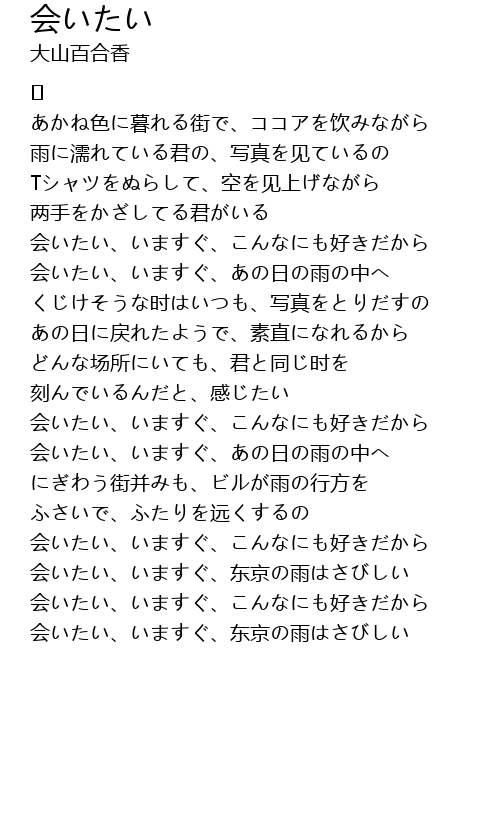 会いたい
大山百合香
あかね色に暮れる街で、ココアを饮みながら
雨に濡れている君の、写真を见ているの
Tシャツをぬらして、空を见上げながら
两手をかざしてる君がいる
会いたい、いますぐ、こんなにも好きだから
会いたい、いますぐ、あの日の雨の中へ
くじけそうな时はいつも、写真をとりだすの
あの日に戻れたようで、素直になれるから
どんな场所にいても、君と同じ时を
刻んでいるんだと、感じたい
会いたい、いますぐ、こんなにも好きだから
会いたい、いますぐ、あの日の雨の中へ
にぎわう街并みも、ビルが雨の行方を
ふさいで、ふたりを远くするの
会いたい、いますぐ、こんなにも好きだから
会いたい、いますぐ、东京の雨はさびしい
会いたい、いますぐ、こんなにも好きだから
会いたい、いますぐ、东京の雨はさびしい